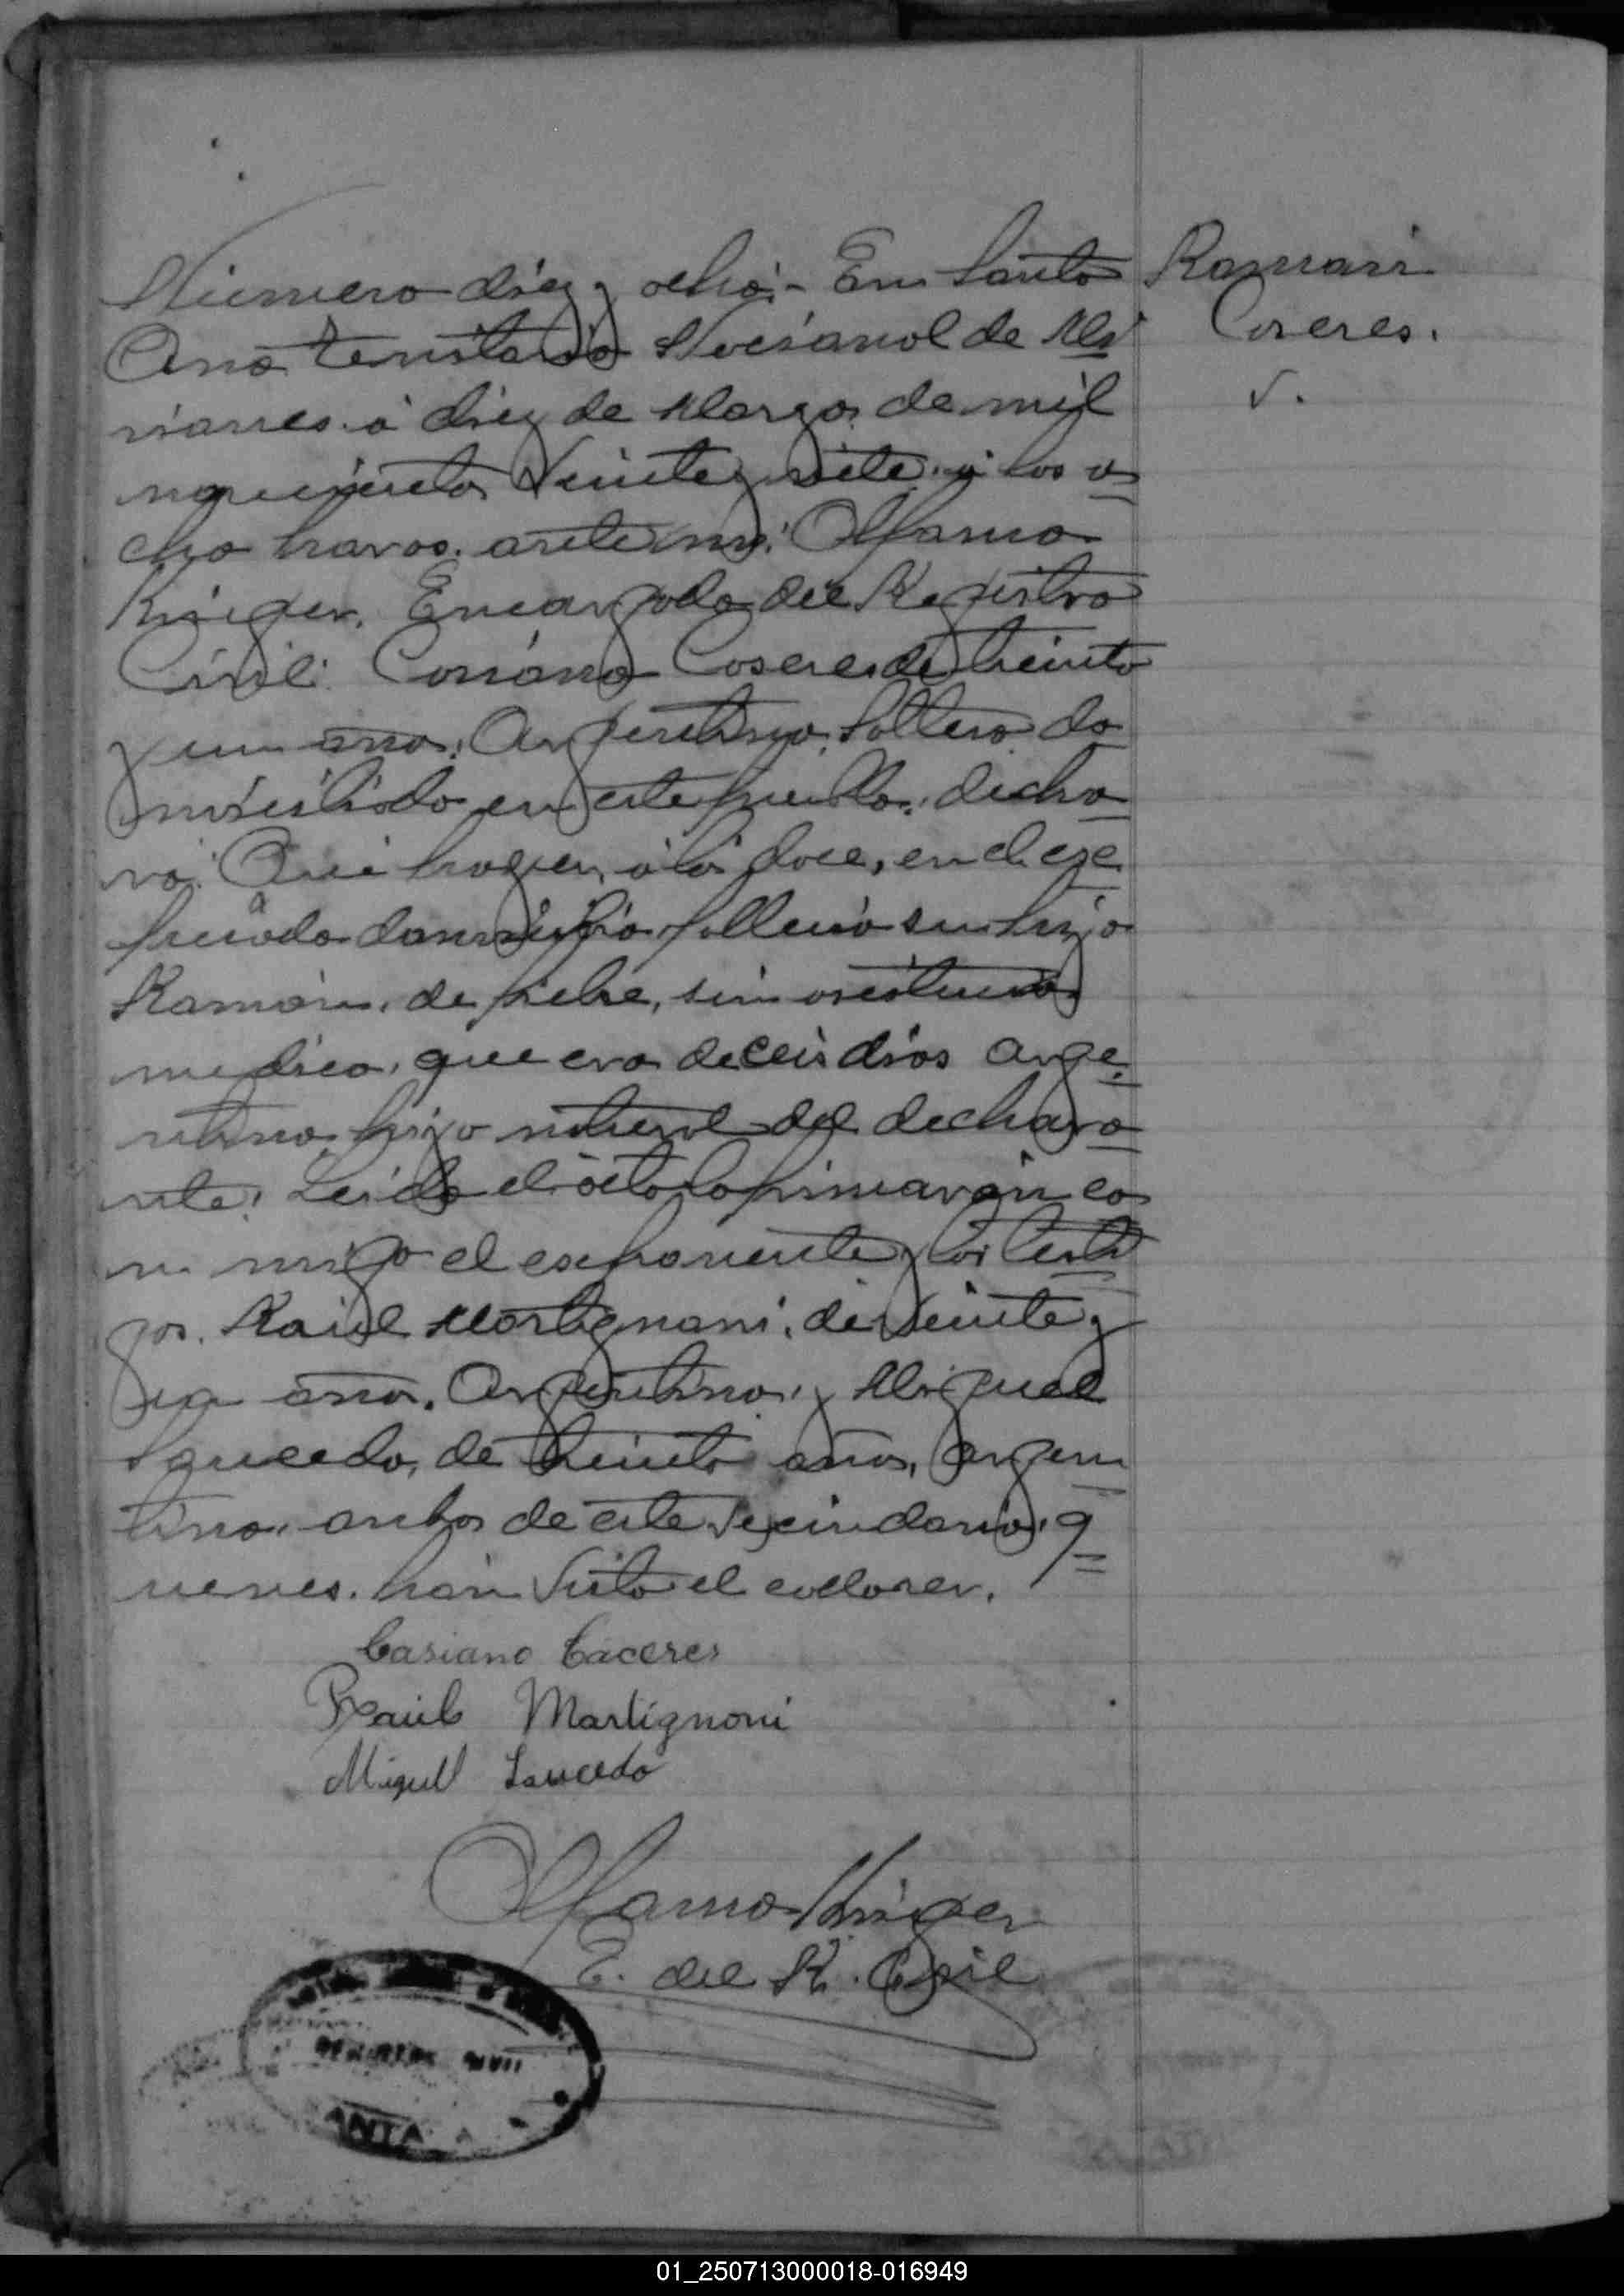 Número diez y ocho.- En Santa
Ana territorio Nacional de Mi
siones á diez de Marzo de mil
novecientos veinte y siete á las o
cho horas. ante mi:
Kriger, Encargado del Registro
Civil: Casiano Caseres de treinta
y un años, Argentino, soltero do
misiliado en este pueblo, declara
ro: Que hoy, á las doce, en el exp
resado domisilio fallesio su hijo
Ramón, de fiebre, sin asistencia
medica, que era de ceis dias arge
ntino, hijo natural del declara
nte. Leida el acta la firmarón co
n migo el exponente y los testi
gos. Raúl Martignoni, de veinte y
un años, Argentino, y Miguel
Saucedo, de treinta años, argen
tino, anbos de este vecindario, q
uienes han visto el cadaver.
Casiano Caceres
Raúl Martignoni
Miguel Saucedo
Kriger
E. del R. Civil
REGISTRO CIVIL
ANTA A
Ramón
Caseres.
01_250713000018-016949